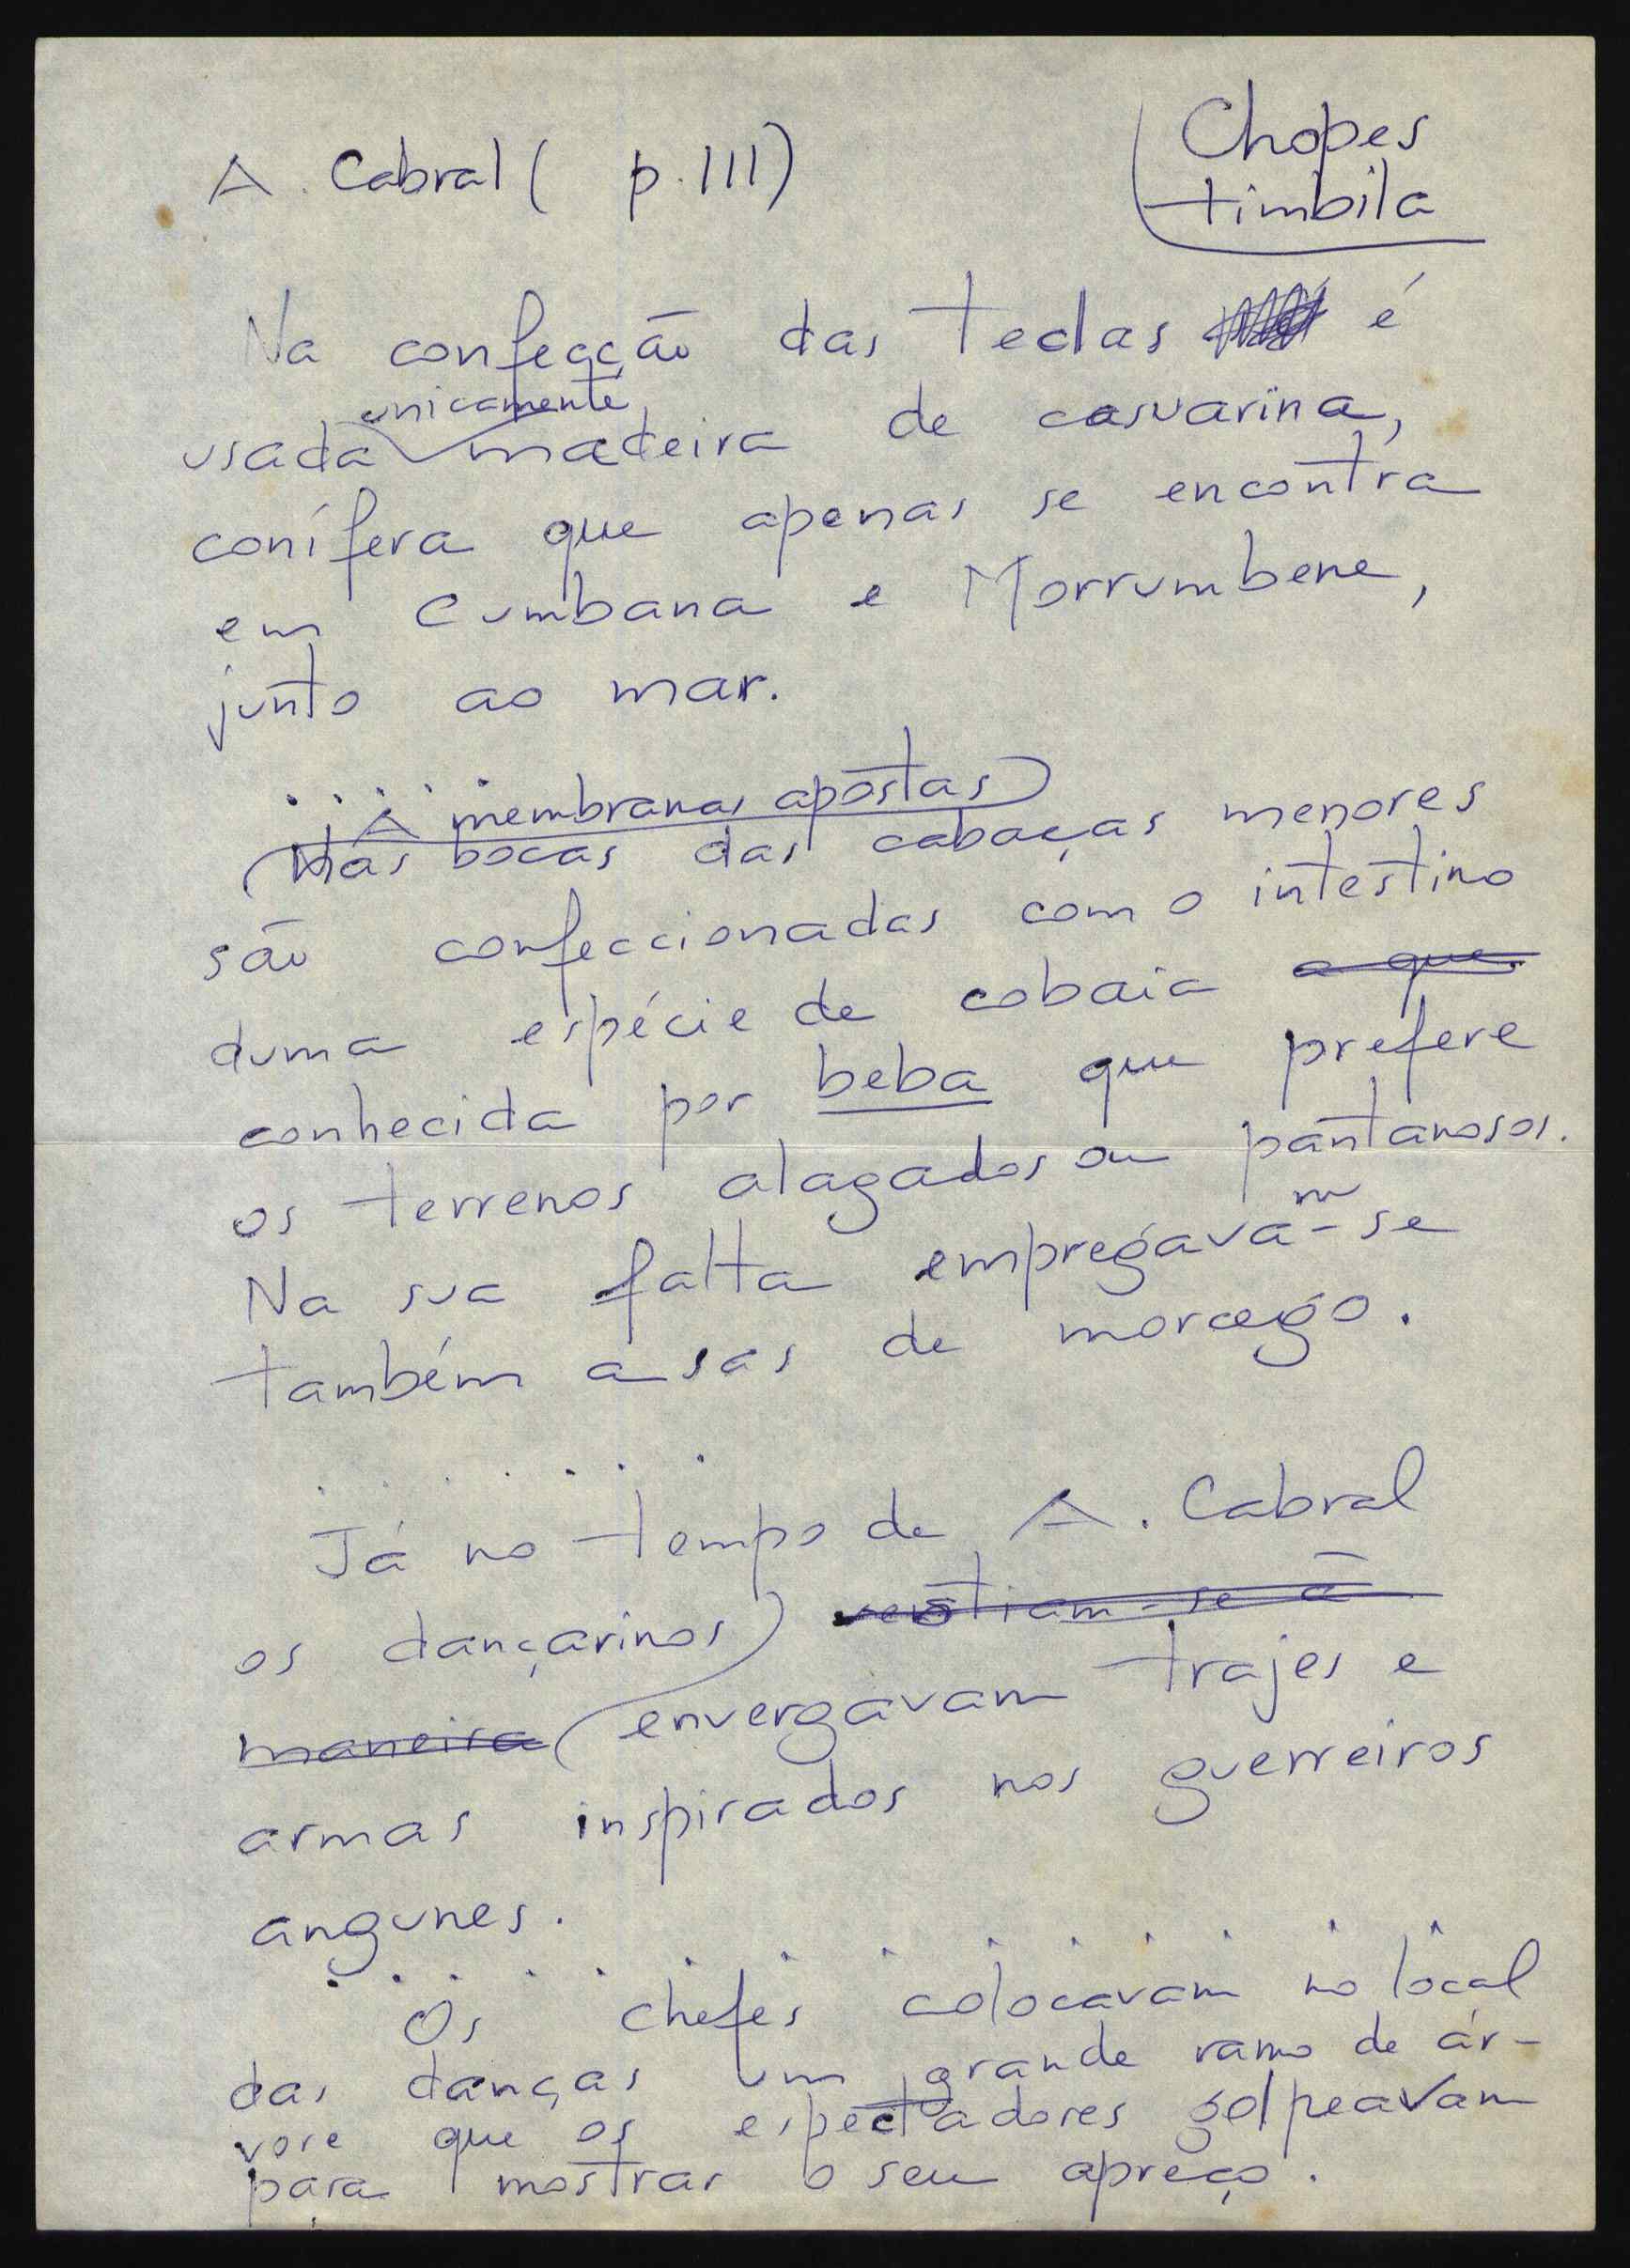 A. Cabral ( p. 111)
Chopes
timbila
Na confecção das teclas é
unicamente
usada madeira de casuarina,
conífera que apenas se encontra
em Cumbana e Morrumbene,
junto ao mar.
. . . . . .
A membranas apostas
nas bocas das cabaças menores
são confeccionadas com o intestino
duma espécie de cobaia a que
conhecida por beba que prefere
os terrenos alagados ou pantanosos.
Na sua falta empregavam-se
também asas de morcego.
. . . . . . .
Já no tempo de A. Cabral
os dançarinos vestiam-se à
maneira envergavam trajes e
armas inspirados nos guerreiros
angunes.
. . . . . . . . . . . . . .
Os chefes colocavam no local
das danças um grande ramo de ár-
vore que os espectadores golpeavam
para mostrar o seu apreço.